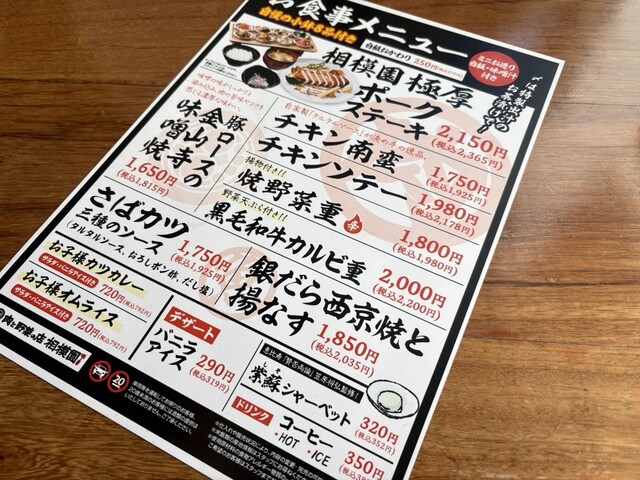 お食事メニュー
自慢の小鉢8品付き
白飯おかわり 250円
ミニお造り
白飯・味噌汁
付き
相模園 極厚
ポーク
ステーキ
2,150円
(税込2,365円)
自家製「タルタルソース」が決め手の逸品。
チキン南蛮
1,750円
(税込1,925円)
チキンソテー
1,980円
(税込2,178円)
揚物付き!!
焼野菜重
辛
1,800円
(税込1,980円)
野菜天ぷら付き!!
黒毛和牛カルビ重
2,000円
(税込2,200円)
豚ロースの
金山寺
味噌焼
1,650円
(税込1,815円)
さばカツ
三種のソース
(タルタルソース、おろしポン酢、だし塩)
1,750円
(税込1,925円)
銀だら西京焼と
揚なす
1,850円
(税込2,035円)
お子様カツカレー
サラダ・バニラアイス付き
720円(税込792円)
お子様オムライス
サラダ・バニラアイス付き
720円(税込792円)
デザート
バニラ
アイス
290円
(税込319円)
紫蘇シャーベット
320円
(税込352円)
ドリンク
コーヒー
・HOT ・ICE
350円
相模園
20
車両等を運転してお帰りのお客様、
20歳未満の方へのお酒の提供は
いたしておりません。ご了承ください。